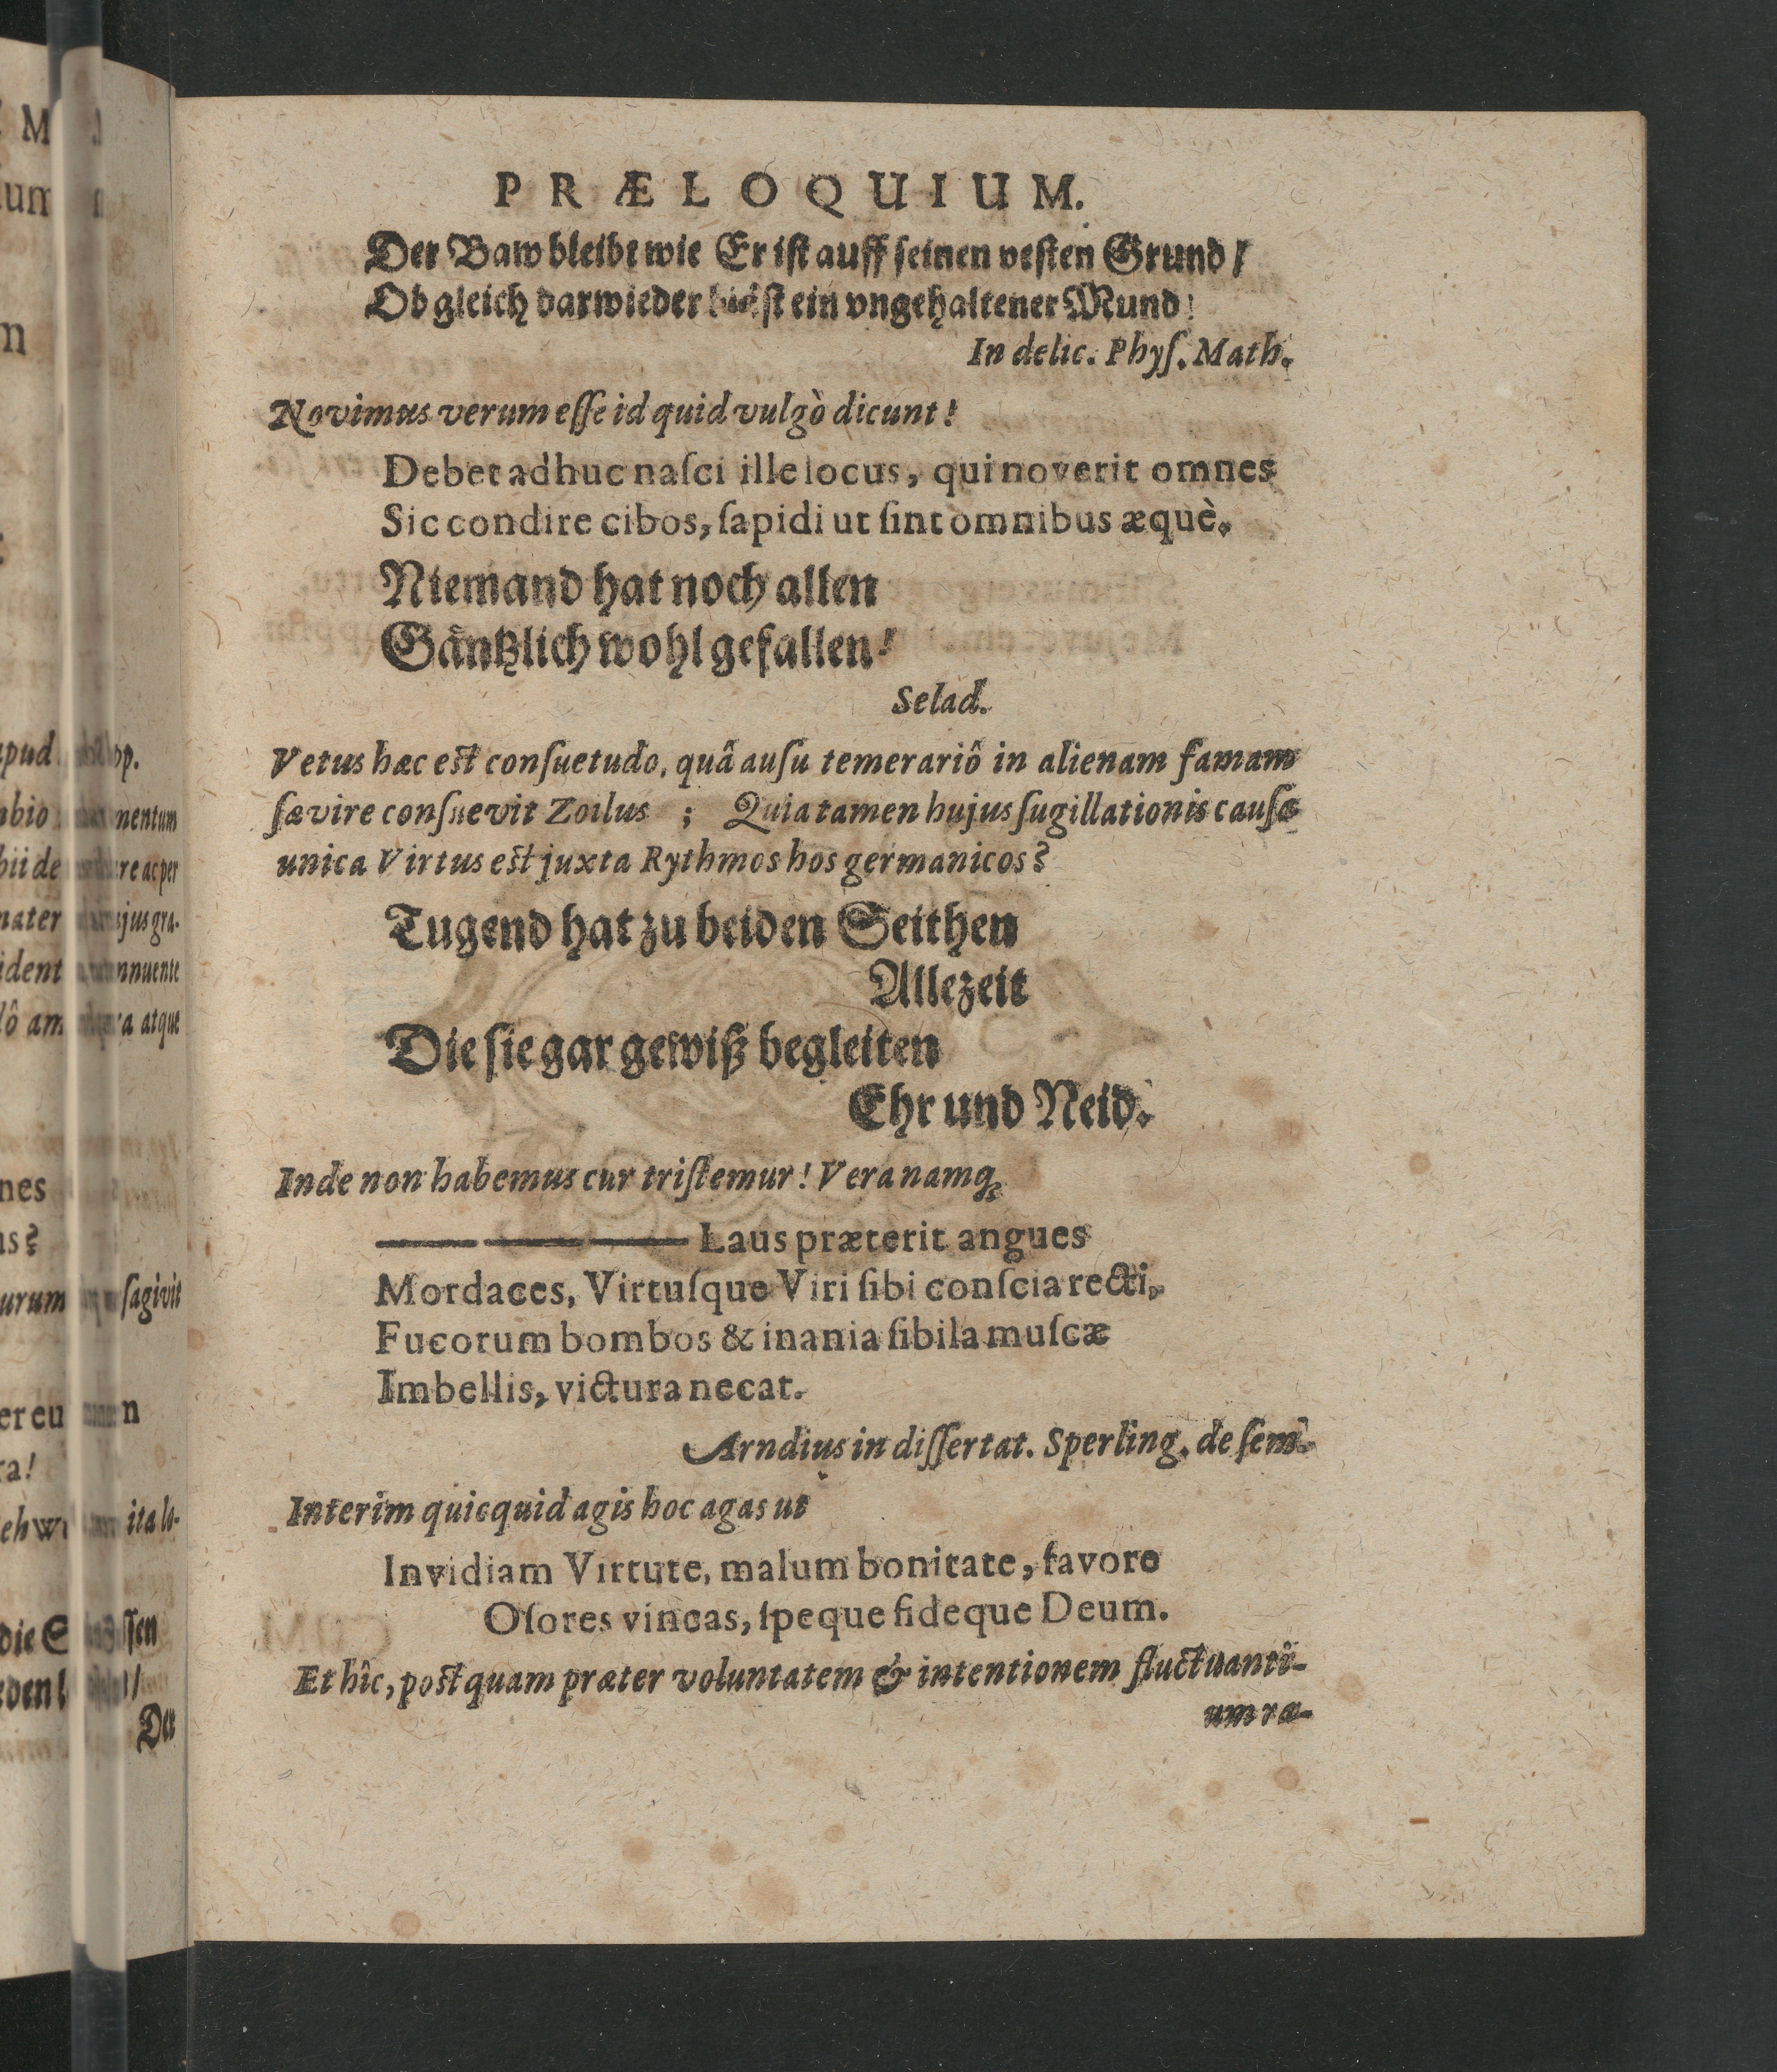 PRÆLOQUIUM.
Der Baw bleibt wie Er ist auff seinen vesten Grund /
Ob gleich darwieder bläst ein vngehaltener Mund!
In delic. Phyſ. Math.
Novimus verum eſſe id quid vulgò dicunt!
Debet adhuc naſci ille locus, qui noverit omnes
Sic condire cibos, ſapidi ut ſint omnibus æquè.
Niemand hat noch allen
Gäntzlich wohl gefallen!
Selad.
Vetus hæc eſt conſuetudo, quâ auſu temerariô in alienam famam
ſævire conſuevit Zoilus ; Quia tamen hujus ſugillationis cauſa
unica Virtus eſt juxta Rythmos hos germanicos?
Tugend hat zu beiden Seithen
Allezeit
Die ſie gar gewiß begleiten
Ehr und Neid.
Inde non habemus cur triſtemur! Vera namq;
Laus præterit angues
Mordaces, Virtuſque Viri ſibi conſcia recti,
Fucorum bombos & inania ſibila muſcæ
Imbellis, victura necat.
Arndius in diſſertat. Sperling. de ſem.
Interim quicquid agis hoc agas ut
Invidiam Virtute, malum bonitate, favore
Oſores vincas, ſpeque fideque Deum.
Et hîc, poſtquam præter voluntatem & intentionem fluctuanti-
um ra-